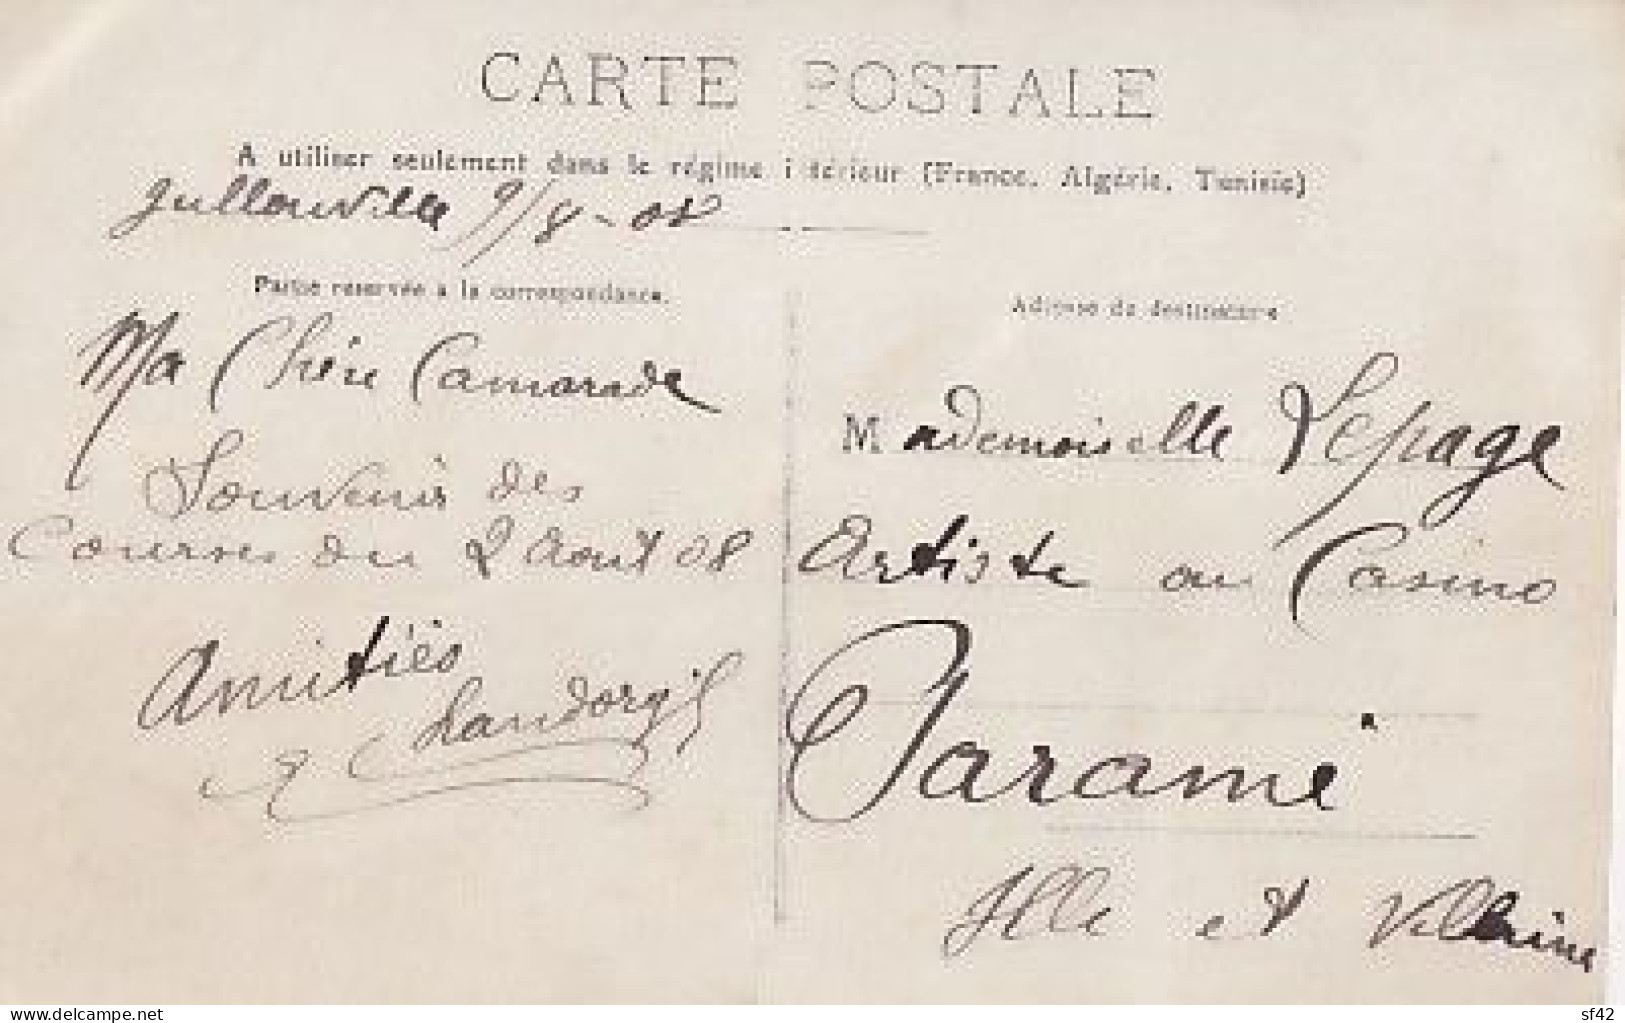 CARTE POSTALE
A utiliser seulement dans le régime i térieur (France, Algérie, Tunisie)
Jullouville 9/8-08
Partie réservée a la correspondance.
Ma Chère Camarade
Souvenir des
Courses du 2 Août 08
Amitiés
Adresse du destinataire
Mademoiselle Lepage
Artiste au Casino
Paramé
Ille et Villaine
www.delcampe.net
sf42